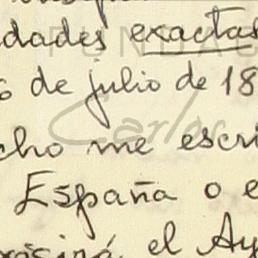 dades exactas
de julio de 18
cho me escri
España o e
el Ay